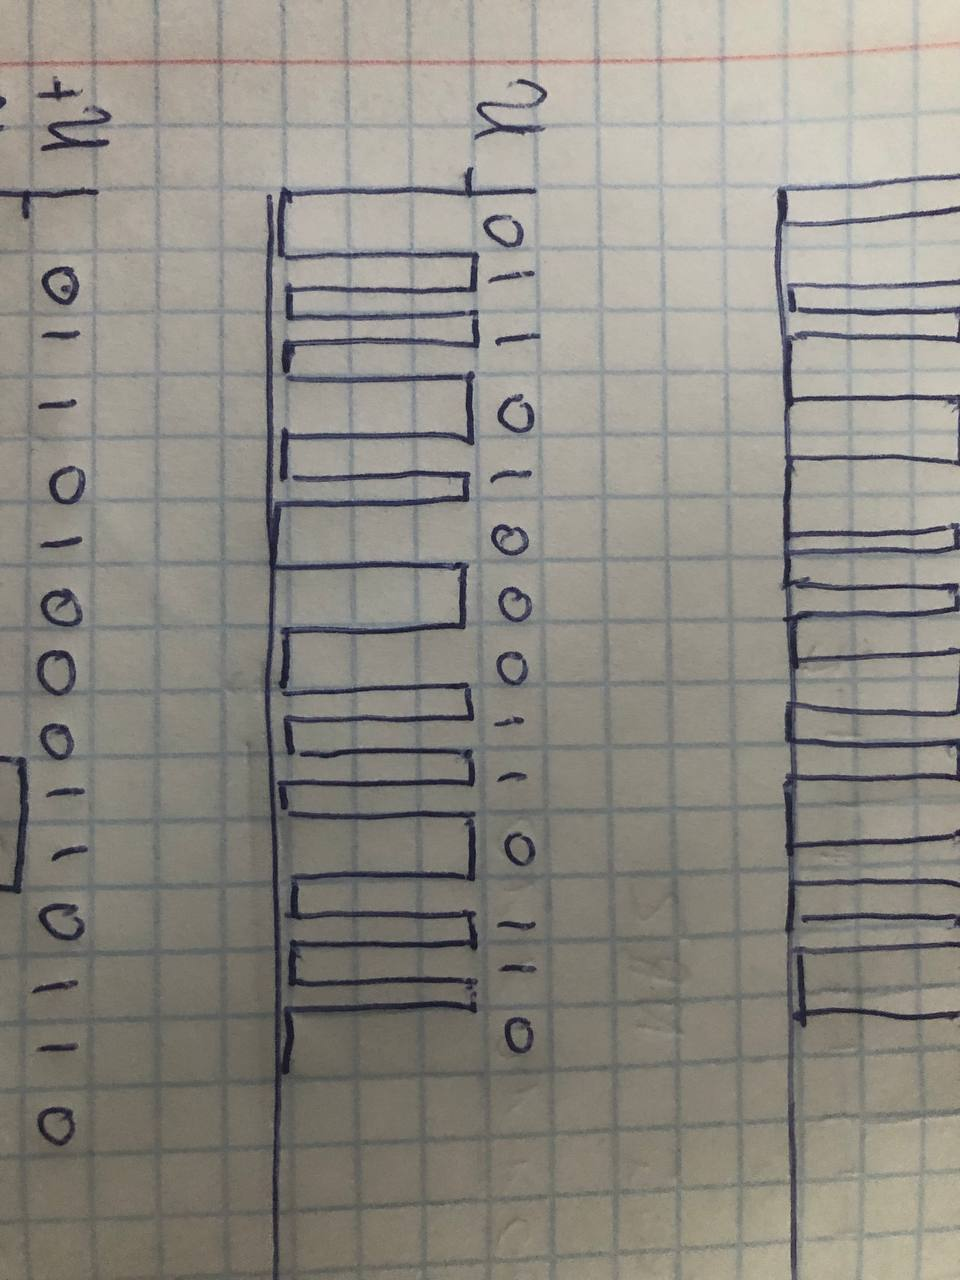 0 1 1 0 1 0 0 0 1 1 0 1 1 0
0 1 1 0 1 0 0 0 1 1 0 1 1 0